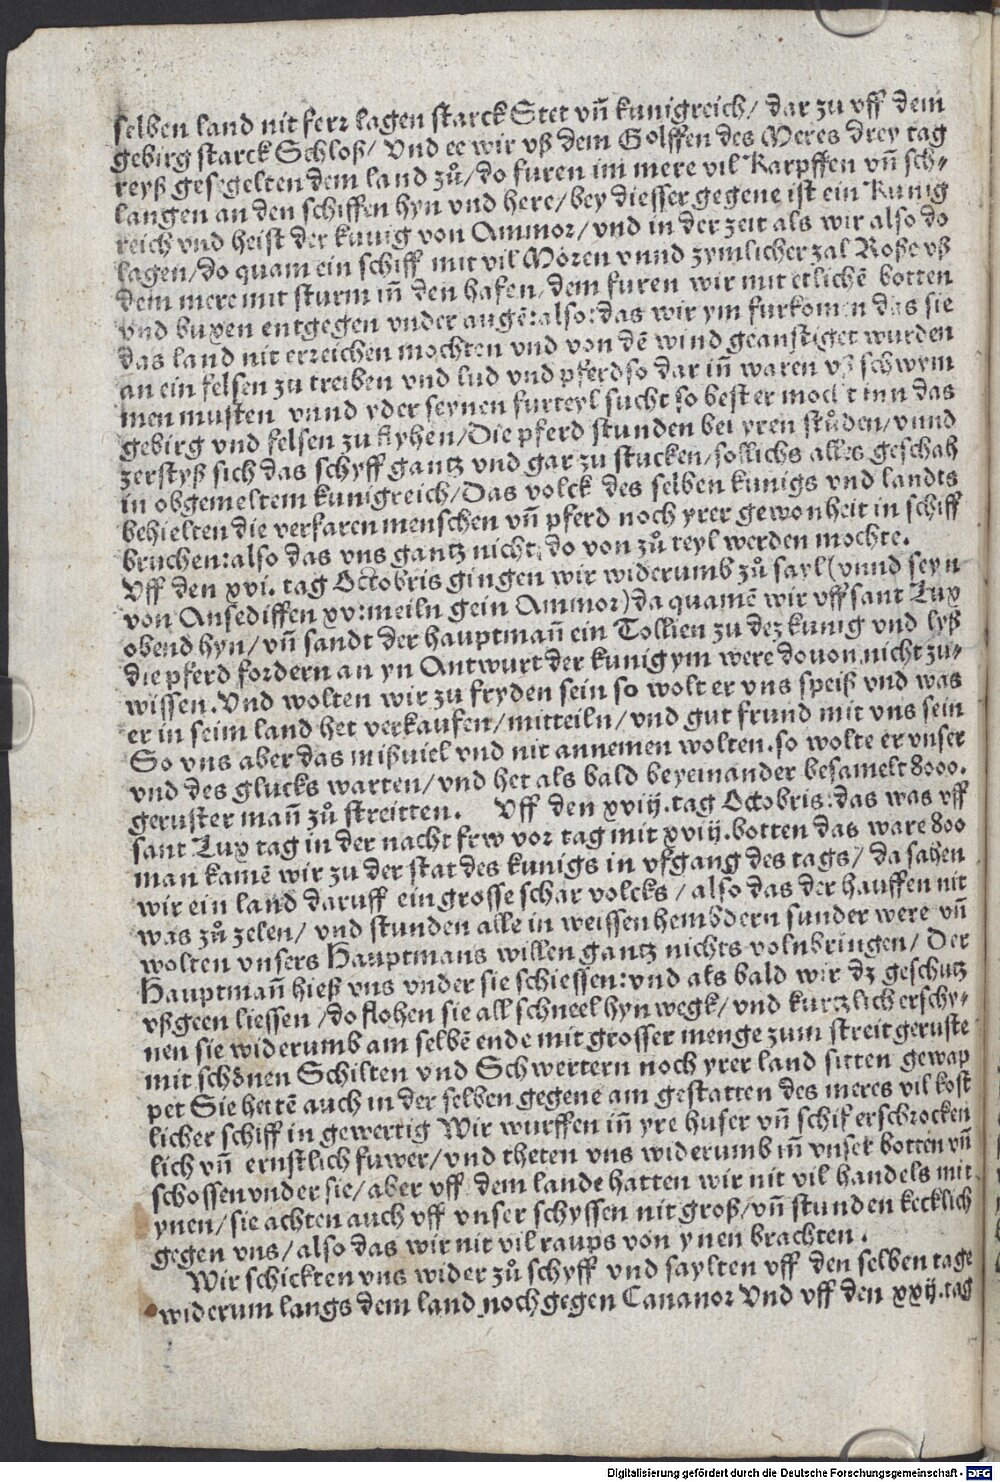 selben land nit ferr lagen starck Stet vñ kunigreich/ dar zu vff dem
gebirg starck Schloß/ Vnd ee wir vß dem Golffen des Meres drey tag
reyß gesegelten dem land zů/ do furen im mere vil Karpffen vñ sch-
langen an den schiffen hyn vnd here/ bey diesser gegene ist ein Kunig
reich vnd heist der kunig von Ammor/ vnd in der zeit als wir also do
lagen/ do quam ein schiff mit vil Moren vnnd zymlicher zal Roße vß
dem mere mit sturm iñ den hafen/ dem furen wir mit etlichē botten
vnd buxen entgegen vnder augē: also: das wir ym furkomen das sie
das land nit erreichen mochten vnd von dē wind geanstiget wurden
an ein felsen zu treiben vnd lud vnd pferd so dar iñ waren vß schwym
men musten vnnd yder seynen furteyl sucht so best er mocht inn das
gebirg vnd felsen zu flyhen/ Die pferd stunden bei yren stůden/ vnnd
zerstyß sich das schyff gantz vnd gar zu stucken/ sollichs alles geschah
in obgemeltem kunigreich/ Das volck des selben kunigs vnd landts
behielten die verfaren menschen vñ pferd noch yrer gewonheit in schiff
bruchen: also das vns gantz nicht do von zů teyl werden mochte.
Vff den xvi. tag Octobris gingen wir widerumb zů sayl (vnnd seyn
von Ansediffen xv: meiln gein Ammor) da quamē wir vff sant Lux
obend hyn/ vñ sandt der hauptmañ ein Tollien zu dez kunig vnd lyß
die pferd fordern an yn Antwurt der kunig ym were douon nicht zu-
wissen. Vnd wolten wir zu fryden sein so wolt er vns speiß vnd was
er in seim land het verkaufen/ mitteiln/ vnd gut frund mit vns sein
So vns aber das mißuiel vnd nit annemen wolten. so wolte er vnser
vnd des glucks warten/ vnd het als bald beyeinander besamelt 8000.
geruster mañ zů streitten. Vff den xviij. tag Octobris: das was vff
sant Lux tag in der nacht frw vor tag mit xviij. botten das ware 800
man kamē wir zu der stat des kunigs in vfgang des tags/ da sahen
wir ein land daruff ein grosse schar volcks / also das der hauffen nit
was zů zelen/ vnd stunden alle in weissen hembdern sunder were vñ
wolten vnsers Hauptmans willen gantz nichts volnbringen/ Der
Hauptmañ hieß vns vnder sie schiessen: vnd als bald wir dz geschutz
vßgeen liessen /do flohen sie all schneel hyn wegk/ vnd kurtzlich erschy-
nen sie widerumb am selbē ende mit grosser menge zum streit geruste
mit schönen Schilten vnd Schwertern noch yrer land sitten gewap
pet Sie hettē auch in der selben gegene am gestatten des meres vil kost
licher schiff in gewertig Wir wurffen iñ yre huser vñ schif erschrocken
lich vñ ernstlich fuwer/ vnd theten vns widerumb iñ vnser botten vñ
schossen vnder sie/ aber vff dem lande hatten wir nit vil handels mit
ynen/ sie achten auch vff vnser schyssen nit groß/ vñ stunden kecklich
gegen vns/ also das wir nit vil raups von ynen brachten.
Wir schickten vns wider zů schyff vnd saylten vff den selben tage
widerum langs dem land noch gegen Cananor Vnd vff den xxij. tag
Digitalisierung gefördert durch die Deutsche Forschungsgemeinschaft - DFG